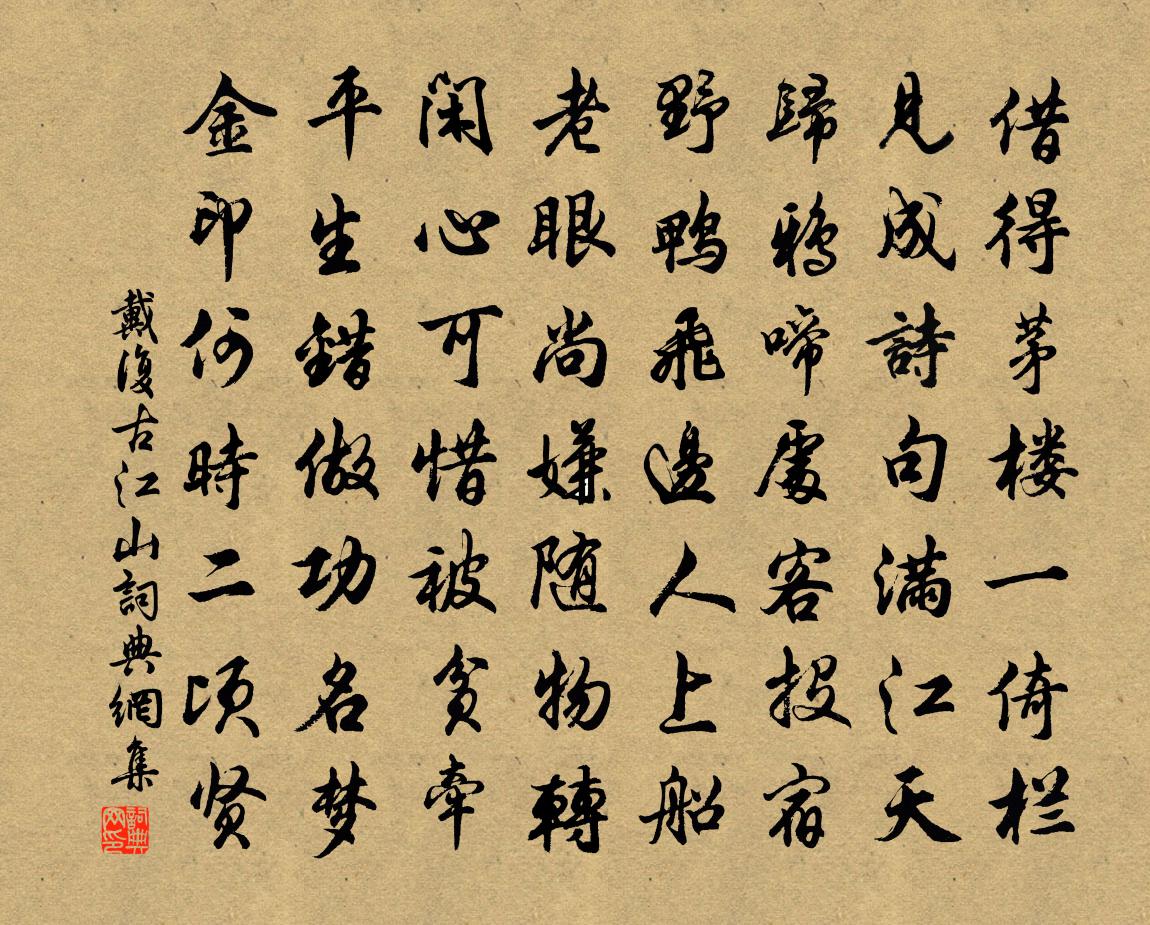 借得茅楼一倚栏
見成詩句满江天
歸鴉啼處客投宿
野鴨飛邊人上船
老眼尚嫌随物轉
闲心可惜被贫牽
平生錯做功名梦
金印何時二顷贤
戴復古江山詞典網集
詞典网印